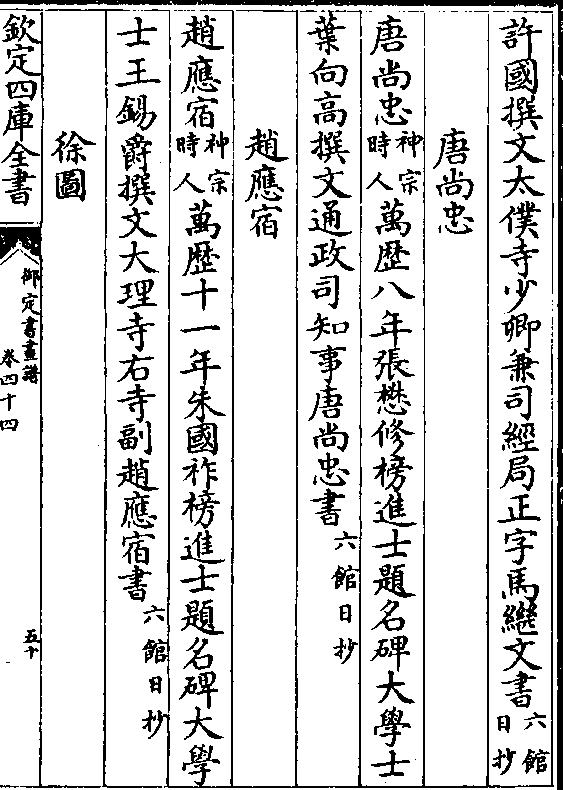 許國撰文太僕寺少卿兼司經局正字馬繼文書六館日抄
唐尚忠
唐尚忠神宗時人萬歷八年張懋修榜進士題名碑大學士
葉向高撰文通政司知事唐尚忠書六館日抄
趙應宿
趙應宿神宗時人萬歷十一年朱國祚榜進士題名碑大學
士王錫爵撰文大理寺右寺副趙應宿書六館日抄
徐圖
欽定四庫全書
御定書畫譜
卷四十四
五十